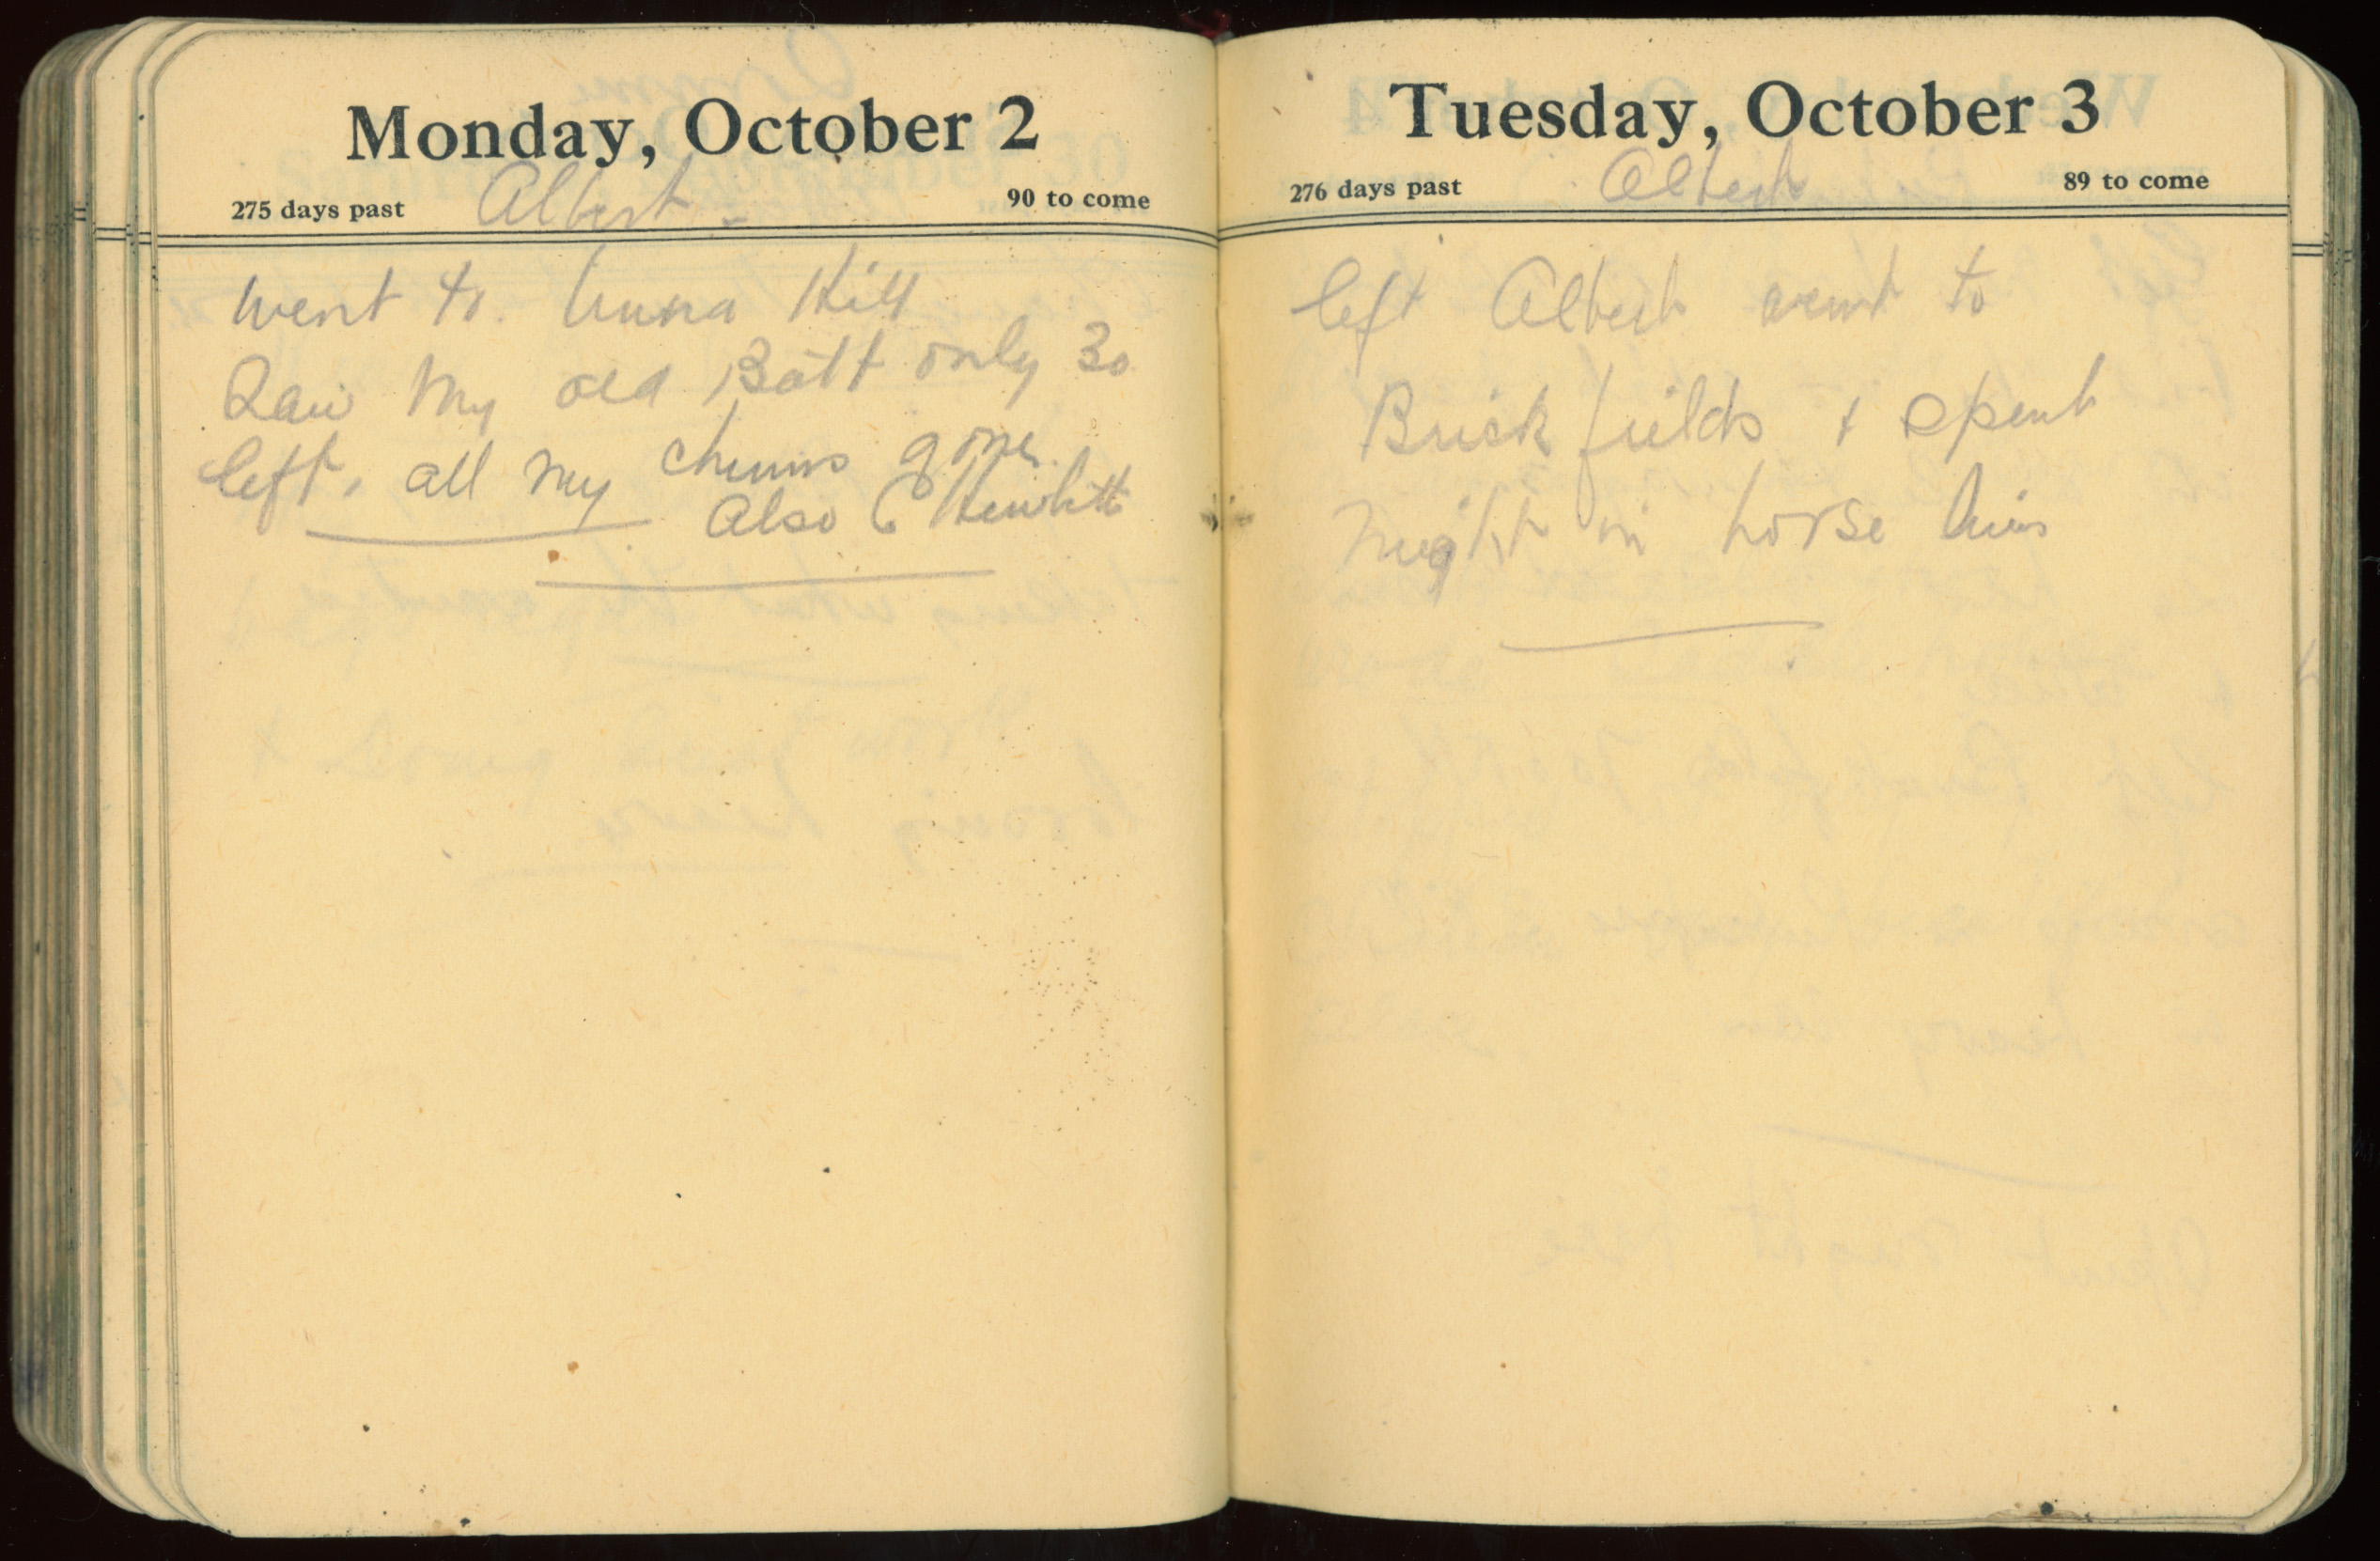 Monday, October 2
275 days past Albert - 90 to come
Went to. Unna Hill
Saw My old Batt only 30
left, all my chums gone.
Also C Hewlitt
Tuesday, October 3
276 days past Albert 89 to come
left Albert went to
Brick fields + spent
Night in horse lines